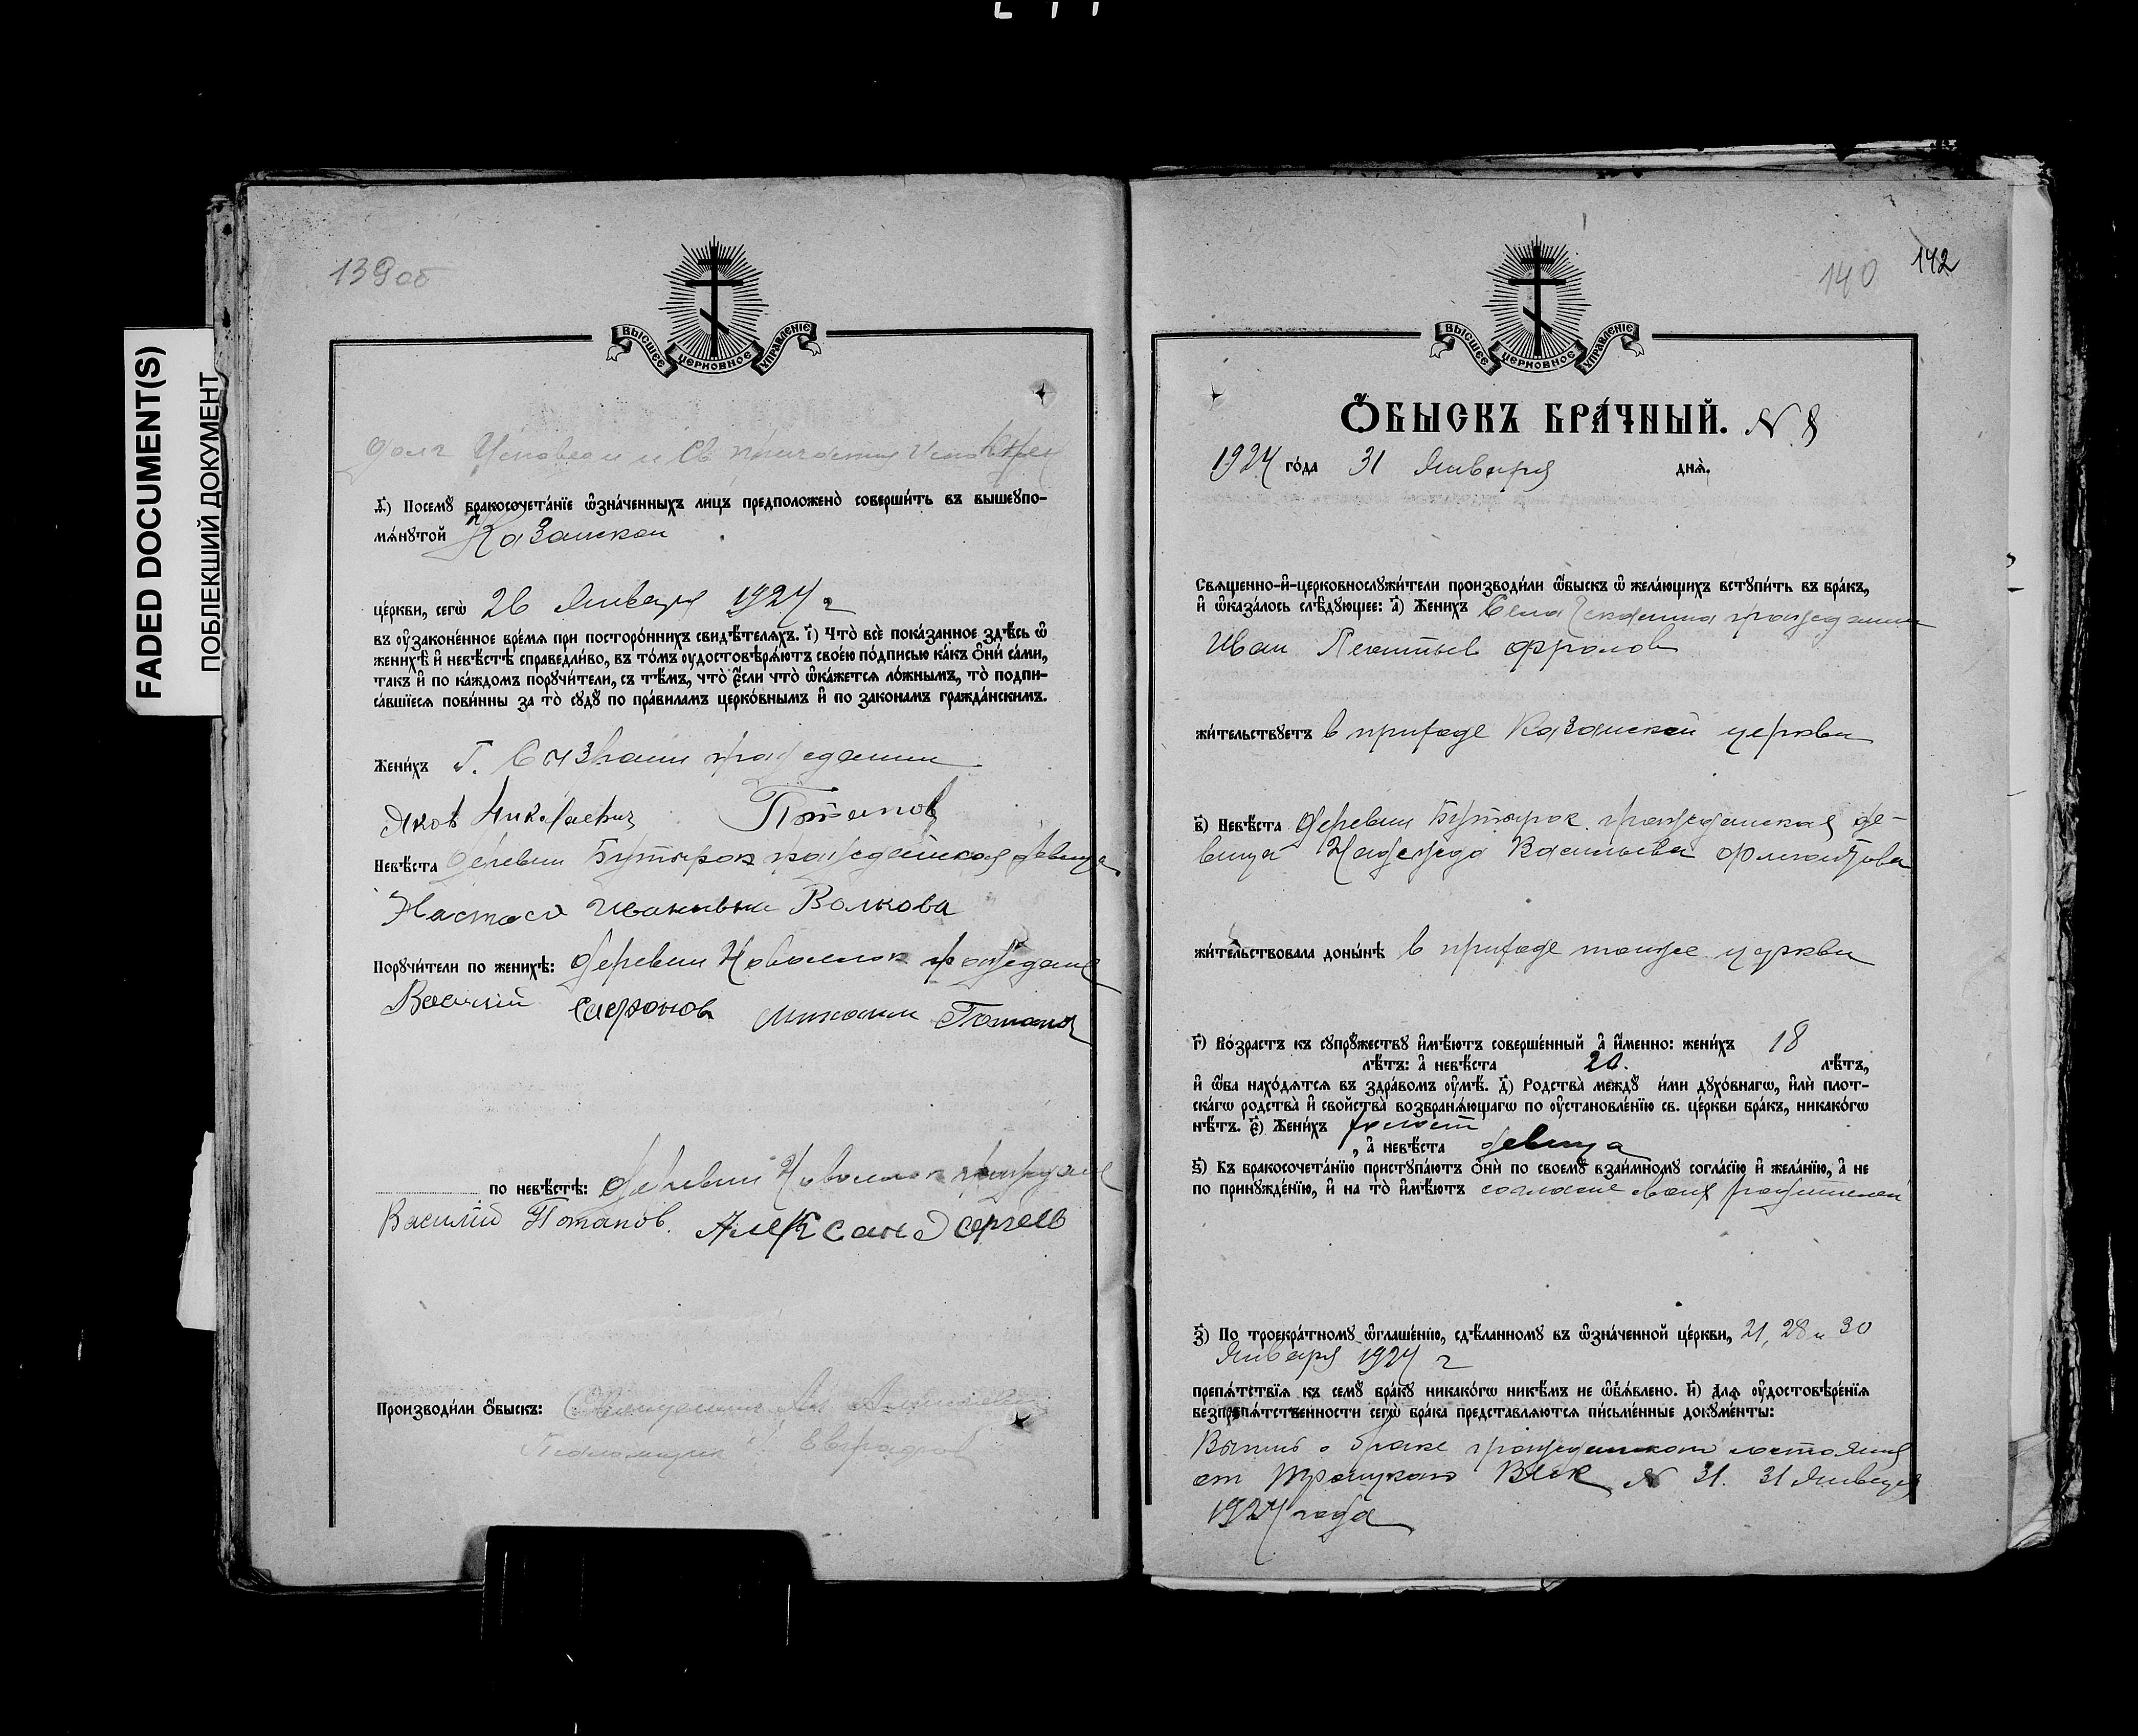 FADED DOCUMENT(S)
ПОБЛЕКШИЙ ДОКУМЕНТ
139об
ВЫСШЕЕ ЦЕРКОВНОЕ УПРАВЛЕНІЕ
долг Исповеди и Св причастия
д҃і) Посемꙋ̀ бракосочета́нїе ѡ҆зна́ченныхъ лицъ предположено̀ соверши́ть въ вышеꙋпо-
мѧ́нꙋтой Казанской
це́ркви, сегѡ̀ 26 Января 1924 г
въ ᲂу҆зако́ненное вре́мѧ при посторо́ннихъ свидѣ́телѧхъ. і҃) Что̀ всѐ пока́занное здѣ́сь ѡ҆
женихѣ̀ и҆ невѣ́стѣ справедли́во, въ то́мъ ᲂу҆достовѣрѧ́ютъ свое́ю по́дписью ка́къ ѻ҆нѝ са́ми,
та́къ и҆ по ка́ждомъ порꙋчи́тели, съ тѣ́мъ, что̀ є҆́сли что̀ ѡ҆ка́жетсѧ ло́жнымъ, то̀ подпи-
са́вшїесѧ пови́нны за то̀ сꙋдꙋ̀ по пра́виламъ церко́внымъ и҆ по зако́намъ гражда́нскимъ.
Жени́хъ г. Сызрани гражданин
Яков Николаевич Потапов
Невѣ́ста деревни Бутырок гражданская девица
Настася Ивановна Волкова
Порꙋчи́тели по женихѣ̀: деревни Новоселок граждане
Василий Сафронов Михаил Потапов
по невѣ́стѣ: деревни Новоселок граждане
Василий Потапов. Александ Сергеев
Производи́ли ѻ҆́быскъ: Священник Ал
Псаломщик Евграфов
140 142
ВЫСШЕЕ ЦЕРКОВНОЕ УПРАВЛЕНІЕ
Ѻ҆́БЫСКЪ БРА́ЧНЫЙ. N 8
1924 го́да 31 Января днѧ̀.
Свѧще́нно-и҆-церковнослꙋжи́тели производи́ли ѡ҆́быскъ ѡ҆ жела́ющихъ встꙋпи́ть въ бра́къ,
и҆ ѡ҆каза́лось слѣ́дꙋющее: а҃) Жени́хъ Села гражданин
Иван Леонтьев Фролов
жи́тельствꙋетъ в приходе Казанской церкви
в҃) Невѣ́ста деревни Бутырок гражданская де-
вица Надежда Васильева
жи́тельствовала доны́нѣ в приходе тойже церкви
г҃) Во́зрастъ къ сꙋпрꙋ́жествꙋ и҆мѣ́ютъ соверше́нный а҆ и҆́менно: жени́хъ 18
лѣ́тъ: а҆ невѣ́ста 20. лѣ́тъ,
и҆ ѡ҆́ба нахо́дѧтсѧ въ здра́вомъ ᲂу҆мѣ̀. д҃) Родства̀ междꙋ̀ и́ми дꙋхо́внагѡ, и҆лѝ плот-
ска́гѡ родства̀ и҆ сво́йства̀ возбранѧ́ющагѡ по ᲂу҆становле́нїю св. це́ркви бра́къ, никако́гѡ
нѣ́тъ. є҃) Жени́хъ холост
, а҆ невѣ́ста девица
ѕ҃) Къ бракосочета́нїю пристꙋпа́ютъ ѻ҆нѝ по своемꙋ̀ взаи́мномꙋ согла́сїю и҆ жела́нїю, а҆ не
по принꙋжде́нїю, и҆ на то̀ и҆мѣ́ютъ согласие своих родителей
з҃) По троекра́тномꙋ ѡ҆глаше́нїю, сдѣ́ланномꙋ въ ѡ҆зна́ченной це́ркви, 21, 28 и 30
Января 1924 г
препѧ́тствїѧ къ семꙋ̀ бра́кꙋ никако́гѡ никѣ́мъ не ѡ҆бѧ́влено. и҃) Длѧ ᲂу҆достовѣре́нїѧ
безпрепѧ́тственности сегѡ̀ бра́ка представлѧ́ютсѧ пи́сьменные докꙋме́нты:
Выпись о браке гражданского состояния
от Троицкаго ВИК N 31. 31 Января
1924 года